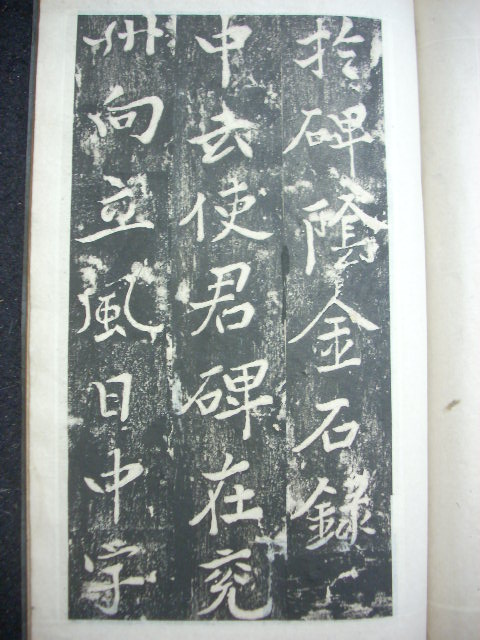 於碑陰金石錄
中去使君碑在兖
州向立風日中字